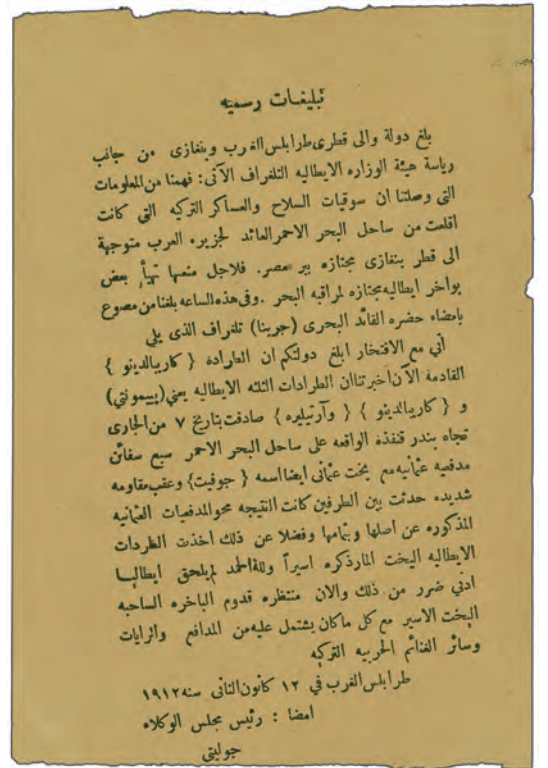 تبليغات رسميه
بلغ دولة والى قطرى طرابلس الغرب وبنغازى من جانب
رياسة هيئة الوزاره الايطاليه التلغراف الآتى: فهمنا من المعلومات
التى وصلتنا ان سوقيات السلاح والعساكر التركيه التى كانت
اقلعت من ساحل البحر الاحمر العائد لجزيره العرب متوجهة
الى قطر بنغازى مجتازه بر مصر. فلاجل منعها تهيأ بعض
بواخر ايطاليه مجتازه لمراقبه البحر .وفى هذه الساعه بلغنا من مصوع
بامضاء حضره القائد البحرى (جرينا) تلغراف الذى يلى
أنى مع الافتخار ابلغ دولتكم ان الطراده { كاريبالدينو }
القادمة الآن اخبرتنا ان الطرادات الثلثه الايطاليه يعنى (پييمونتى)
و { كاريبالدينو } { وآرتيليره } صادفت بتاريخ ٧ من الجارى
تجاه بندر قنفذه الواقعه على ساحل البحر الاحمر سبع سفائن
مدفعيه عثمانيه مع يخت عثمانى ايضا اسمه { جوفيت } وعقب مقاومه
شديده حدثت بين الطرفين كانت النتيجه محو المدفعيات العثمانيه
المذكوره عن اصلها وبتمامها وفضلا عن ذلك اخذت الطردات
الايطاليه اليخت المار ذكره اسيراً ولله الحمد لم يلحق ايطاليا
ادنى ضرر من ذلك والان منتظره قدوم الباخره الساحبه
اليخت الاسير مع كل ماكان يشتمل عليه من المدافع والرايات
وسائر الغنائم الحربيه التركيه
طرابلس الغرب فى ١٢ كانون الثانى سنه ١٩١٢
امضا : رئيس مجلس الوكلاء
جوليتى